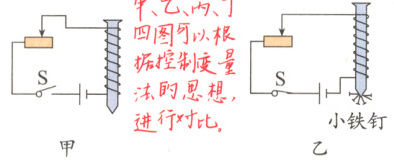 甲、乙、丙、丁
四图可以根
据控制变量
法的思想,
进行对比。
S
甲
S
小铁钉
乙